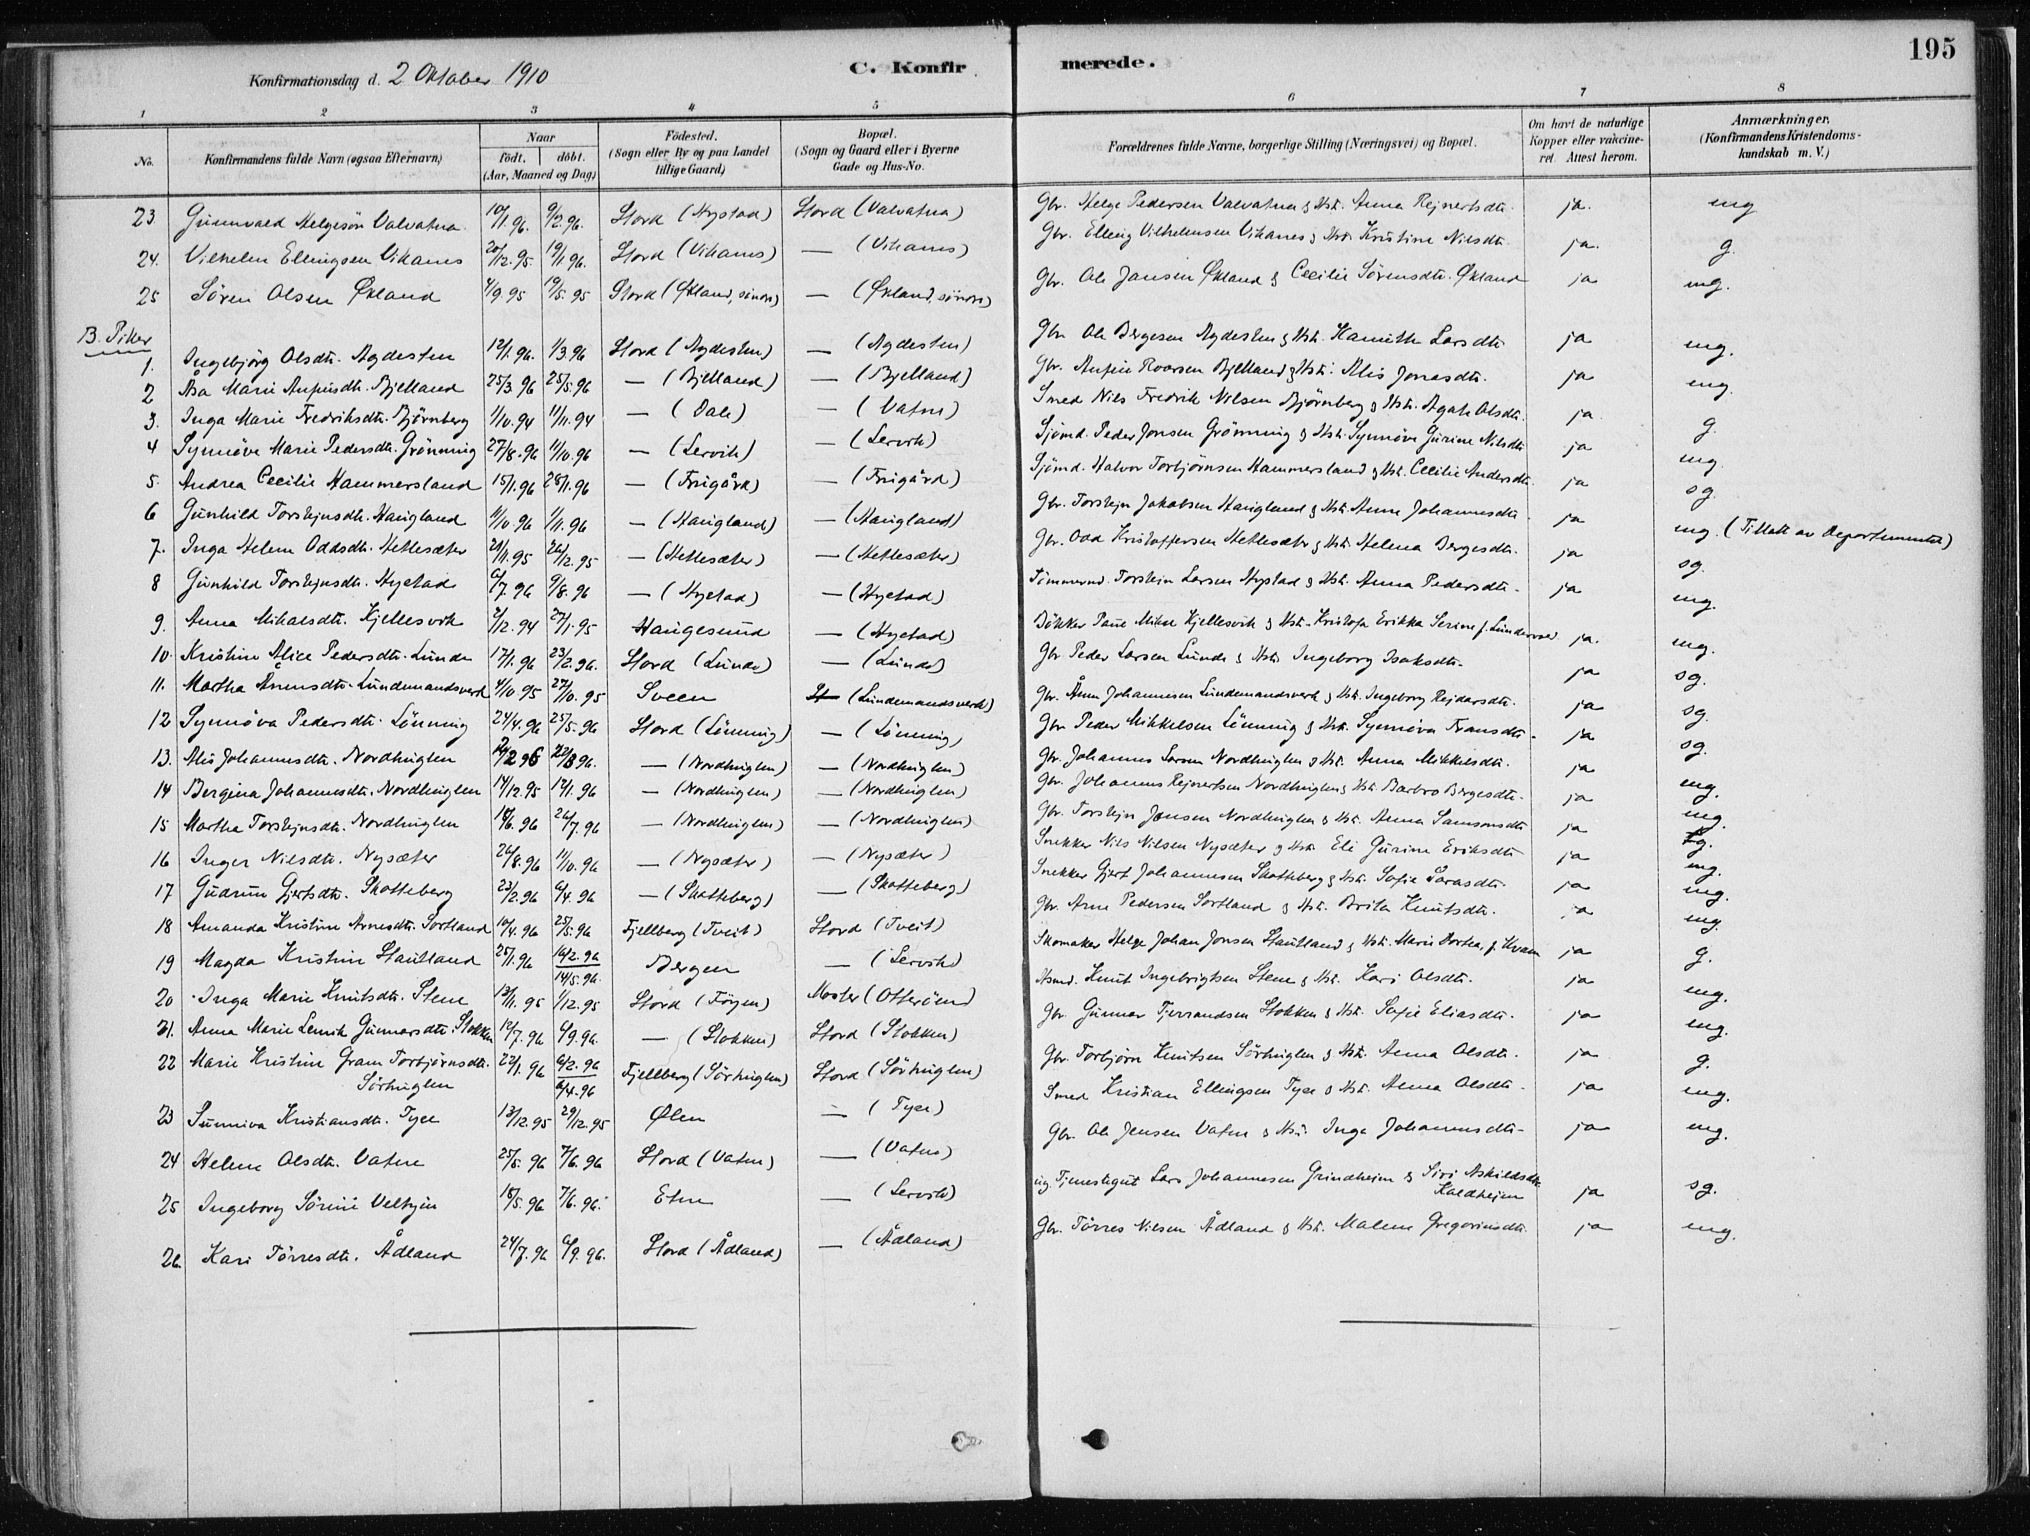 195
Konfirmationsdag d. 2 Oktober 1910 C. Konfirmerede.
1 2 3 4 5 6 7 8
No. Konfirmandens fulde Navn (ogsaa Efternavn) Naar födt. döbt. (Aar, Maaned og Dag) Födested. (Sogn eller By og paa Landet tillige Gaard) Bopæl. (Sogn og Gaard eller i Byerne Gade og Hus-No. Forældrenes fulde Navne, borgerlige Stilling (Næringsvei) og Bopæl. Om havt de naturlige Kopper eller vakcineret. Attest herom. Anmærkninger. (Konfirmandens Kristendomskundskab m. V.)
23 Gunnvald Helgesön Valvatna 10/1.96. 9/2.96. Stord (Nystad) Stord (Valvatna) Gbr. Helge Pedersen Valvatna & Hst. Anna Rejnertsdtr. ja. mg
24. Vilhelm Ellingsen Vikanes 20/12.95 19/1.96. Stord (Vikanes) — (Vikanes) Gbr. Elling Vilhelmsen Vikanes & Hst. Kristine Nilsdtr. ja. g.
25 Sören Olsen Økland 4/9.95 19/5.95 Stord (Økland, sönore) — (Økland, sönore) Gbr. Ole Jansen Økland & Cecilie Sörensdtr. Økland ja mg.
B. Piker
1. Ingebjörg Olsdtr. Agdesten 12/1.96. 1/3.96 Stord (Agdesten) — (Agdesten) Gbr. Ole Bergesen Agdesten & Hst. Hamith Larsdtr. ja mg.
2 Åsa Marie Anfinsdtr. Bjelland 25/3.96 25/5.96 — (Bjelland) — (Bjelland) Gbr. Anfin Roarsen Bjelland & Hst. Alis Jonasdtr. ja mg.
3. Inga Marie Fredriksdtr. Björnberg 1/10.94 11/11.94 — (Dale) — (Vatne) Smed Nils Fredrik Nilsen Björnberg & Hst. Agate Olsdtr. ja g.
4 Synnöve Marie Pedersdtr. Grönning 27/8.96 11/10.96 — (Lervik) — (Lervik) Sjömd. Peder Jonsen Grönning & Hst. Synnöve Gurine Nilsdtr. ja mg.
5. Andrea Cecilie Hammersland 15/1.96 28/1.96 — (Frugård) — (Frugård) Sjömd. Halvor Torbjörnsen Hammersland & Hst. Cecilie Andersdtr. ja sg.
6 Gunhild Torstejnsdtr. Haugland 11/10.96 1/11.96 — (Haugland) — (Haugland) Gbr. Torstejn Jakobsen Haugland & Hst. Anne Johannesdtr. ja mg. (Tillatt av Departementet)
7. Inga Helene Oddsdtr. Hetlesæter 21/11.95 26/12.95 — (Hetlesæter) — (Hetlesæter) Gbr. Odd Kristoffersen Hetlesæter & Hst. Helena Bergesdtr. ja sg.
8 Gunhild Torstejnsdtr. Hystad 6/7.96 9/8.96 — (Hystad) — (Hystad) Tömmermd. Torstein Larsen Hystad & Hst. Anna Pedersdtr. ja mg.
9. Anna Mikalsdtr. Kjellesvik 2/12.94 27/1.95 Haugesund — (Hystad) Bökker Paul Mikal Kjellesvik & Hst. Kristofa Erikka Serine ja. mg.
10. Kristine Alice Pedersdtr. Lunde 17/1.96 23/2.96. Stord (Lunde) — (Lunde) Gbr Peder Larsen Lunde & Hst. Ingeborg Isaksdtr. ja sg.
11. Martha Ånensdtr. Lundemandsverk 4/10.95 27/10.95 Sveen (Lundemandsverk) Gbr. Ånen Johannesen Lundemandsverk & Hst. Ingeborg Rejdarsdtr. ja sg.
12 Synnöva Pedersdtr. Lönning 24/4.96 25/5.96 Stord (Lönning) — (Lönning) Gbr. Peder Mikkelsen Lönning & Hst. Synnöva Fransdtr. ja sg.
13. Alis Johannesdtr. Nordhuglen 22/3 96. — (Nordhuglen) — (Nordhuglen) Gbr. Johannes Larsen Nordhuglen & Hst. Anna Mikkelsdtr. ja mg.
14 Bergina Johannesdtr. Nordhuglen 14/12.95 12/1.96 — (Nordhuglen) — (Nordhuglen) Gbr. Johannes Rejnertsen Nordhuglen & Hst. Barbro Bergesdtr. ja mg.
15 Martha Torstejnsdtr. Nordhuglen 18/6.96 26/7.96 — (Nordhuglen) — (Nordhuglen) Gbr. Torstejn Jensen Nordhuglen & Hst. Anna Samsonsdtr. ja
16 Inger Nilsdtr. Nysæter 26/8.96 11/10.96 — (Nysæter) — (Nysæter) Snekker Nils Nilsen Nysæter & Hst. Eli Gurine Eriksdtr. ja mg.
17 Gudrun Gjertsdtr. Skotteberg 23/2.96 6/4.96 — (Skotteberg) — (Skotteberg) Snekker Gjert Johannesen Skotteberg & Hst. Sofie Larsdtr. ja mg.
18 Amanda Kristine Arnesdtr. Sortland 10/4.96 25/5.96 Fjellberg (Tveit) Stord (Tveit) Gbr. Arne Pedersen Sortland & Hst. Brita Knutsdtr. ja mg.
19 Magda Kristine Stautland 25/1.96 16/2.96 14/5.96. Bergen — (Lervik) Skomaker Helge Johan Jonsen Stautland & Hst. Marie Dortea, f. Kvam ja g.
20 Inga Marie Knutsdtr. Stene 13/11.95 1/12.95 Stord (Föyen) Moster (Otteröen) Hsmd. Knut Ingebrigtsen Stene & Hst. Kari Olsdtr. ja mg.
21. Anna Marie Lervik Gunnarsdtr. Stokken 10/7.96 6/9.96. — (Stokken) Stord (Stokken) Gbr. Gunnar Tjerrandsen Stokken & Hst. Sofie Eliasdtr. ja mg.
22 Marie Kristine Gram Torbjörnsdtr. Sörhuglen 22/1.96 6/2.96 6/4.96 Fjellberg (Sörhuglen) Stord (Sörhuglen) Gbr. Torbjörn Knutsen Sörhuglen & Hst. Anna Olsdtr. ja g.
23 Sunniva Kristiansdtr. Tyse 13/12.95 29/12.95 Ølen — (Tyse) Smed Kristian Ellingsen Tyse & Hst. Anna Olsdtr. ja mg.
24 Helene Olsdtr. Vatne 25/5.96 7/6.96 Stord (Vatne) — (Vatne) Gbr. Ole Jensen Vatne & Hst. Inga Johannesdtr. ja mg.
25 Ingeborg Sörine 18/5.96 7/6.96. Etne — (Lervik) ug. Tjenestegut Lars Johannesen Grindheim & Siri Askildsdtr. Kaldheim ja sg.
26. Kari Törresdtr. Ådland 24/7.96 6/9.96. Stord (Ådland) — (Ådland) Gbr. Törres Nilsen Ådland & Hst. Malene Gregoriusdtr. ja mg.